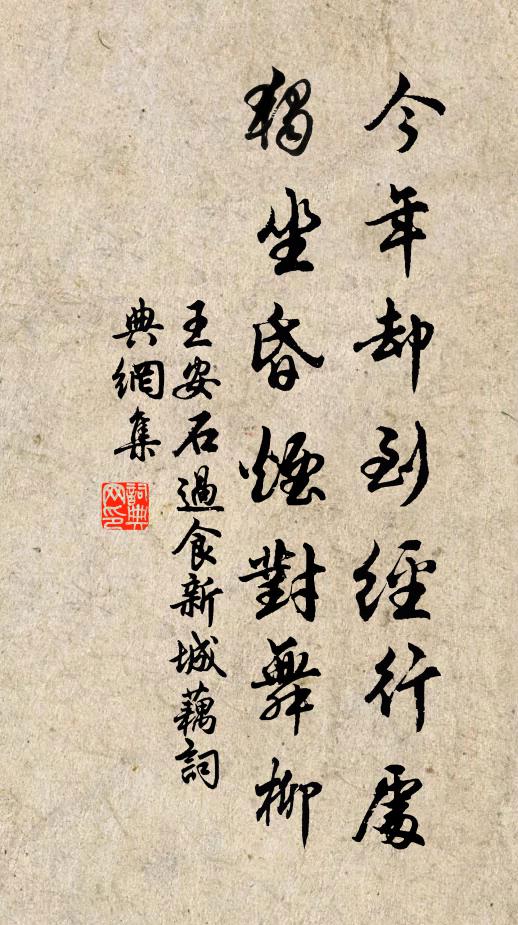 今年却到經行處
獨坐昏煙對舞柳
王安石過食新城藕詞
典網集
詞典
网印